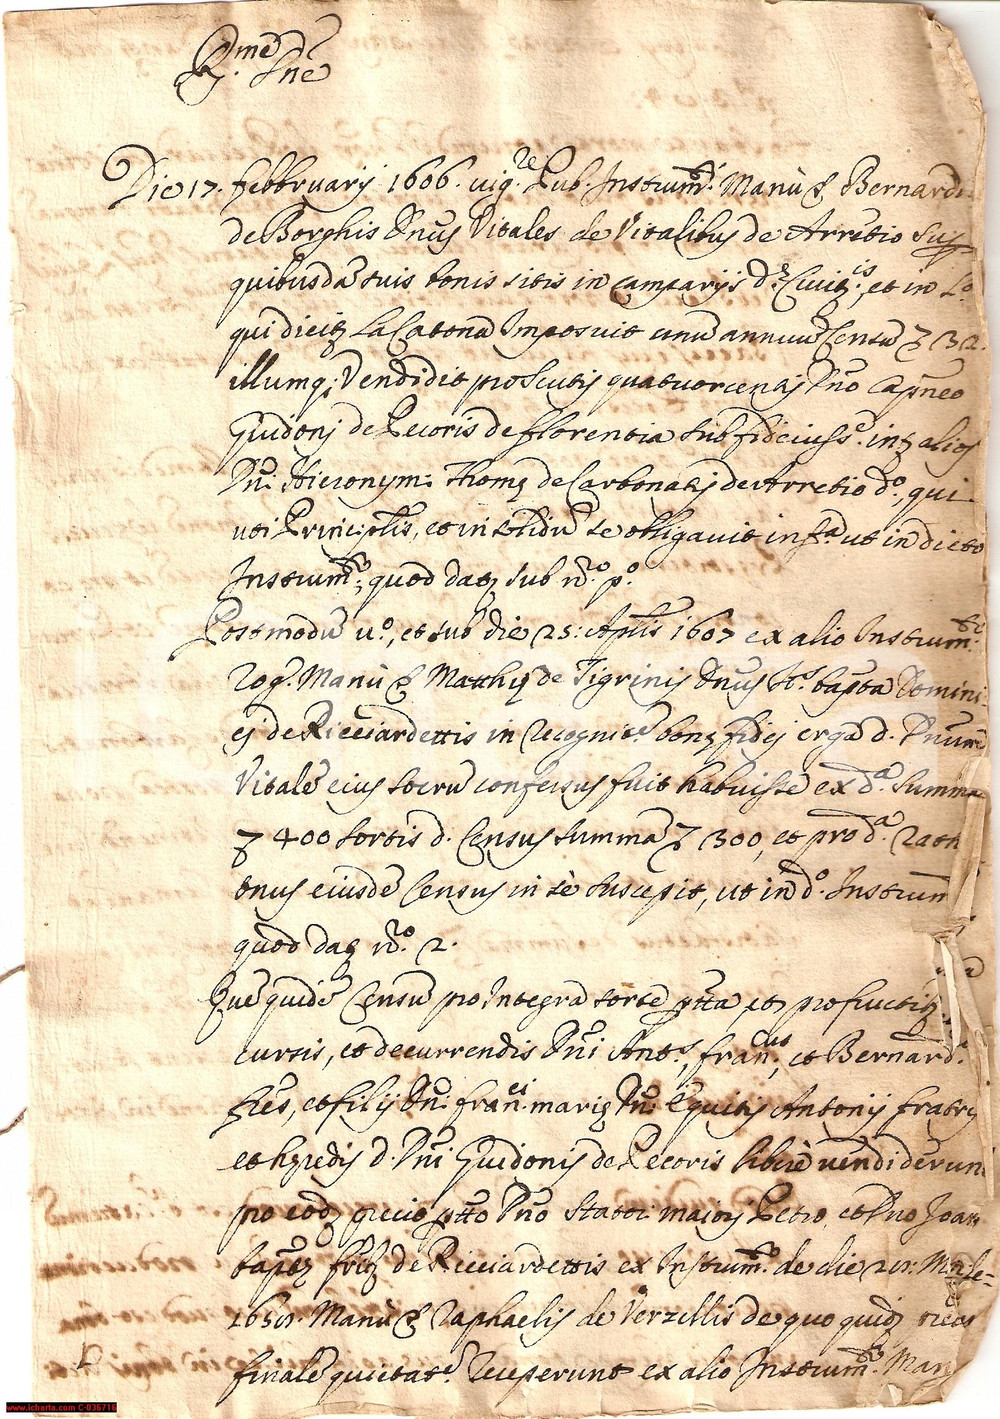 Die 17. Febbruarij 1606. vig.re Pub. Instrum.ti Manu S. Bernardi
de Borghis Dnus Vitales de Vitalibus de Arretio sup.
quibusda suis bonis sitis in camparijs d. Civit.is, et in L.o
qui dicit La Catona Imposuit unu annuu Censu 32.
illumq; Vendidit pro Scutis quatuorcentis Dno
Guidonj de Pecoris de Florentia sub fideiuss.e int alios
Dni Hieronymi Thome de Carbonatis de Arretio d.o, qui
uti Principlis, et in solidu se obligavit in ut in dicto
Instrum.to, quod dat sub n.o p.o
Postmodu v.o, et sub die 25. Aplis 1607 ex alio Instrum.to
Rog. Manu S. Matthej de Tigrinis Dnus Bapta Domini-
ej de Ricciardettis in recognit.e bone fidej erga d. Dnum
Vitale eius socru confessus fuit habuisse ex d.a Summa
400 sortis d. Census summa 300, et pro d.a rata
onus eiusde Census in se suscepit, ut in d.o Instrum
quod dat n.o 2.
Que quide Censu pro Integra sorte ptta et pro fructib.
cursis, et decurrendis Dni Ant.s, Fran.cus, et Bernard.s
fres, et filij Dni Fran.ci mariq Dni Equitis Antonij fratris
et heredis d. Dni Guidonis de Pecoris libere vendiderun
pro eod precio ptto Dno maiorj Petro, et Dno Joan
bapte frib de Ricciardettis ex Instrum.to de die
Manu S. Raphaelis de Verzellis de quo quid
finale quietat.e receperunt ex alio Instrum.to Man
www.icharta.com C-036716